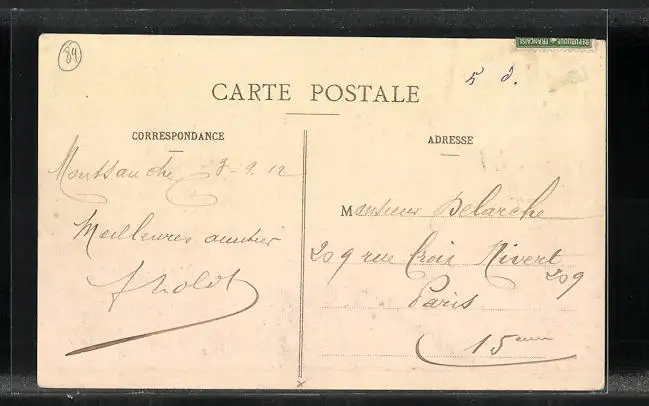 89
REPUBLIQUE FRANÇAISE
5 d.
CARTE POSTALE
CORRESPONDANCE
ADRESSE
Montsauche 8-9.12
Monsieur Delarche
Meilleures amitiés
209 rue Croix Nivert
209
Paris
15eme